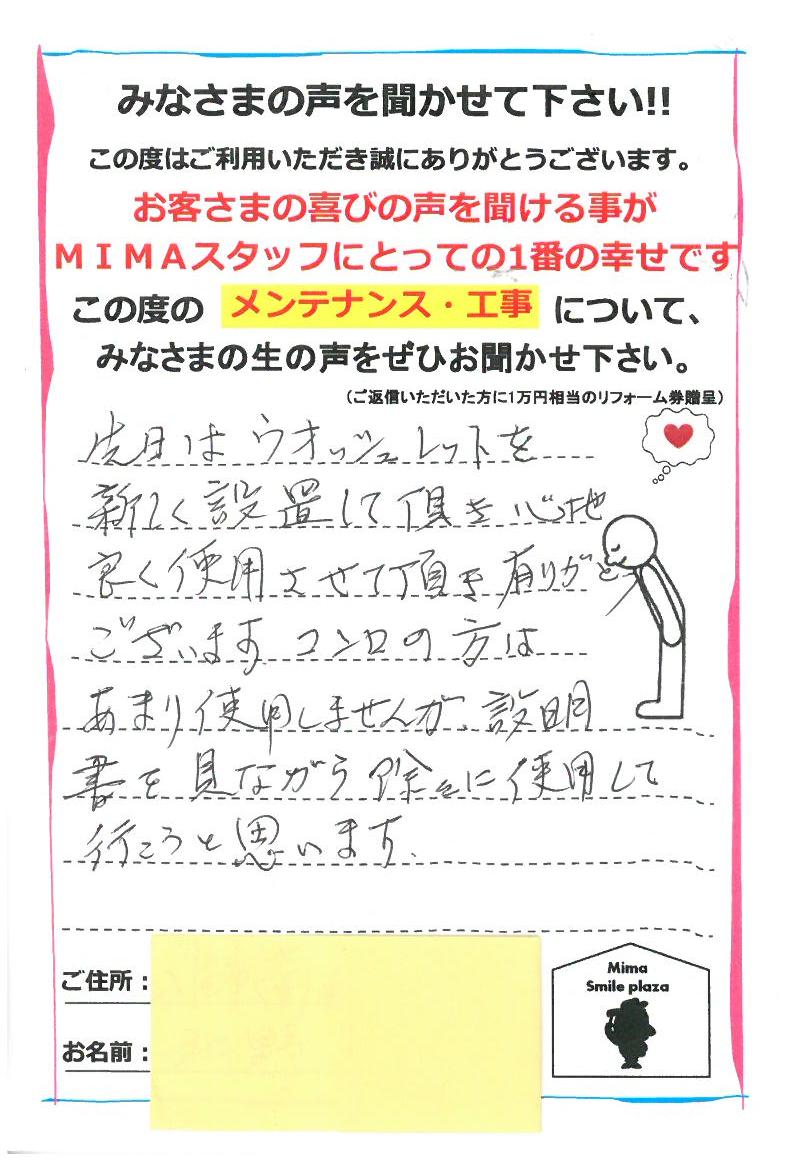 みなさまの声を聞かせて下さい!!
この度はご利用いただき誠にありがとうございます。
お客さまの喜びの声を聞ける事が
ＭＩＭＡスタッフにとっての1番の幸せです
この度の メンテナンス・工事 について、
みなさまの生の声をぜひお聞かせ下さい。
（ご返信いただいた方に1万円相当のリフォーム券贈呈）
先日は ウオッシュレットを
新しく設置して頂き心地
良く使用させて頂き有りがと
ございます コンロの方は
あまり使用しませんが、説明
書を見ながら徐々に使用して
行こうと思います.
ご住所：
お名前：
Mima
Smile plaza